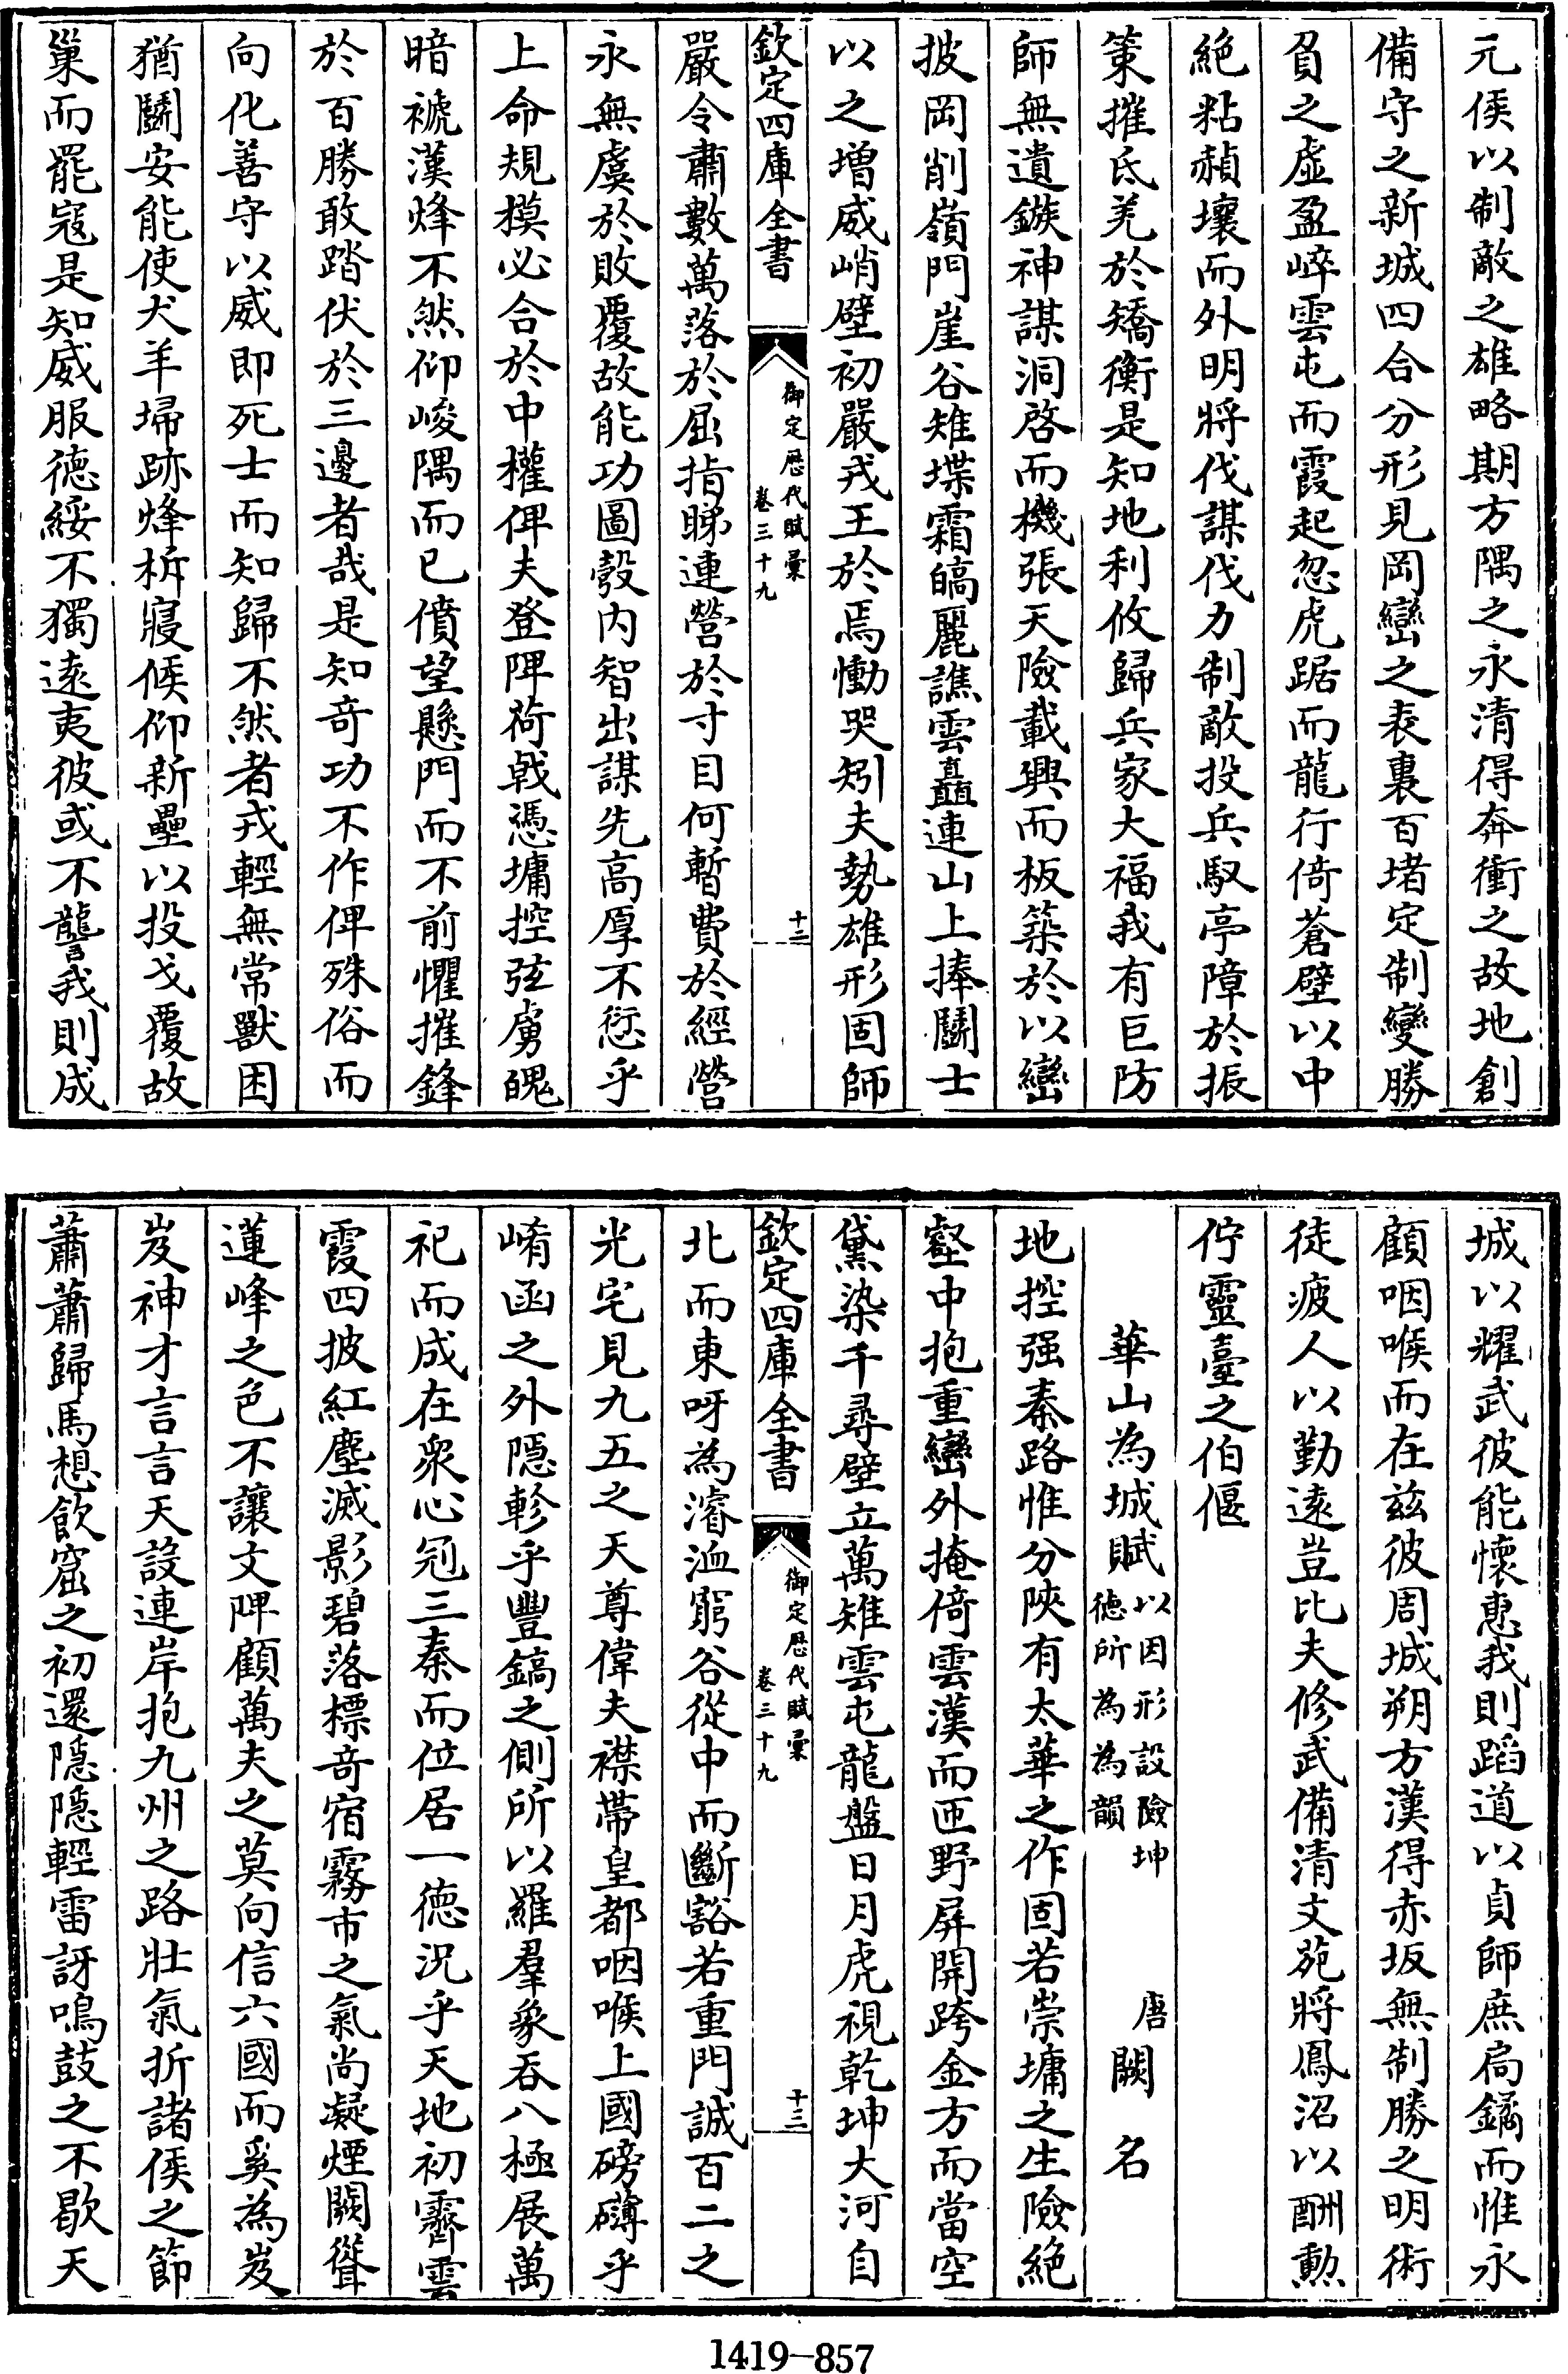 元侯以制敵之雄略期方隅之永清得奔衝之故地創
備守之新城四合分形見岡巒之表裏百堵定制變勝
負之虛盈崪雲屯而霞起忽虎踞而龍行倚蒼壁以中
絶粘赬壤而外明將伐謀伐力制敵投兵馭亭障於振
策摧氐羌於矯衡是知地利攸歸兵家大福我有巨防
師無遺鏃神謀洞啓而機張天險載興而板築於以巒
披岡削嶺門崖谷雉堞霜皜麗譙雲矗連山上捧鬭士
以之増威峭壁初嚴戎王於焉慟哭矧夫勢雄形固師
欽定四庫全書
御定歴代賦彙
卷三十九
十二
嚴令肅數萬落於屈指睇連營於寸目何暫費於經營
永無虞於敗覆故能功圖彀内智出謀先高厚不愆乎
上命規模必合於中權俾夫登陴荷戟憑墉控弦虜魄
暗褫漢烽不然仰峻隅而已僨望懸門而不前懼摧鋒
於百勝敢踏伏於三邊者哉是知竒功不作俾殊俗而
向化善守以威即死士而知歸不然者戎輕無常獸困
猶鬭安能使犬羊埽跡烽柝寢候仰新壘以投戈覆故
巢而罷寇是知威服德綏不獨逺夷彼或不讋我則成
城以耀武彼能懷惠我則蹈道以貞師庶扃鐍而惟永
顧咽喉而在兹彼周城朔方漢得赤坂無制勝之明術
徒疲人以勤逺豈比夫修武備清文苑將鳳沼以酬勲
佇靈臺之伯偃
華山為城賦 以因形設險坤德所為為韻 唐 闕 名
地控强秦路惟分陜有太華之作固若崇墉之生險絶
壑中抱重巒外掩倚雲漢而匝野屏開跨金方而當空
黛染千尋壁立萬雉雲屯龍盤日月虎視乾坤大河自
欽定四庫全書
御定歴代賦彙
卷三十九
十三
北而東呀為濬洫窮谷從中而斷豁若重門誠百二之
光宅見九五之天尊偉夫襟帶皇都咽喉上國磅礴乎
崤函之外隱軫乎豐鎬之側所以羅羣象吞八極展萬
祀而成在衆心冠三秦而位居一德况乎天地初霽雲
霞四披紅塵滅影碧落標竒宿霧市之氣尚凝煙闕聳
蓮峰之色不讓文陴顧萬夫之莫向信六國而奚為岌
岌神才言言天設連岸抱九州之路壯氣折諸侯之節
蕭蕭歸馬想飲窟之初還隱隱輕雷訝鳴鼓之不歇天
1419-857